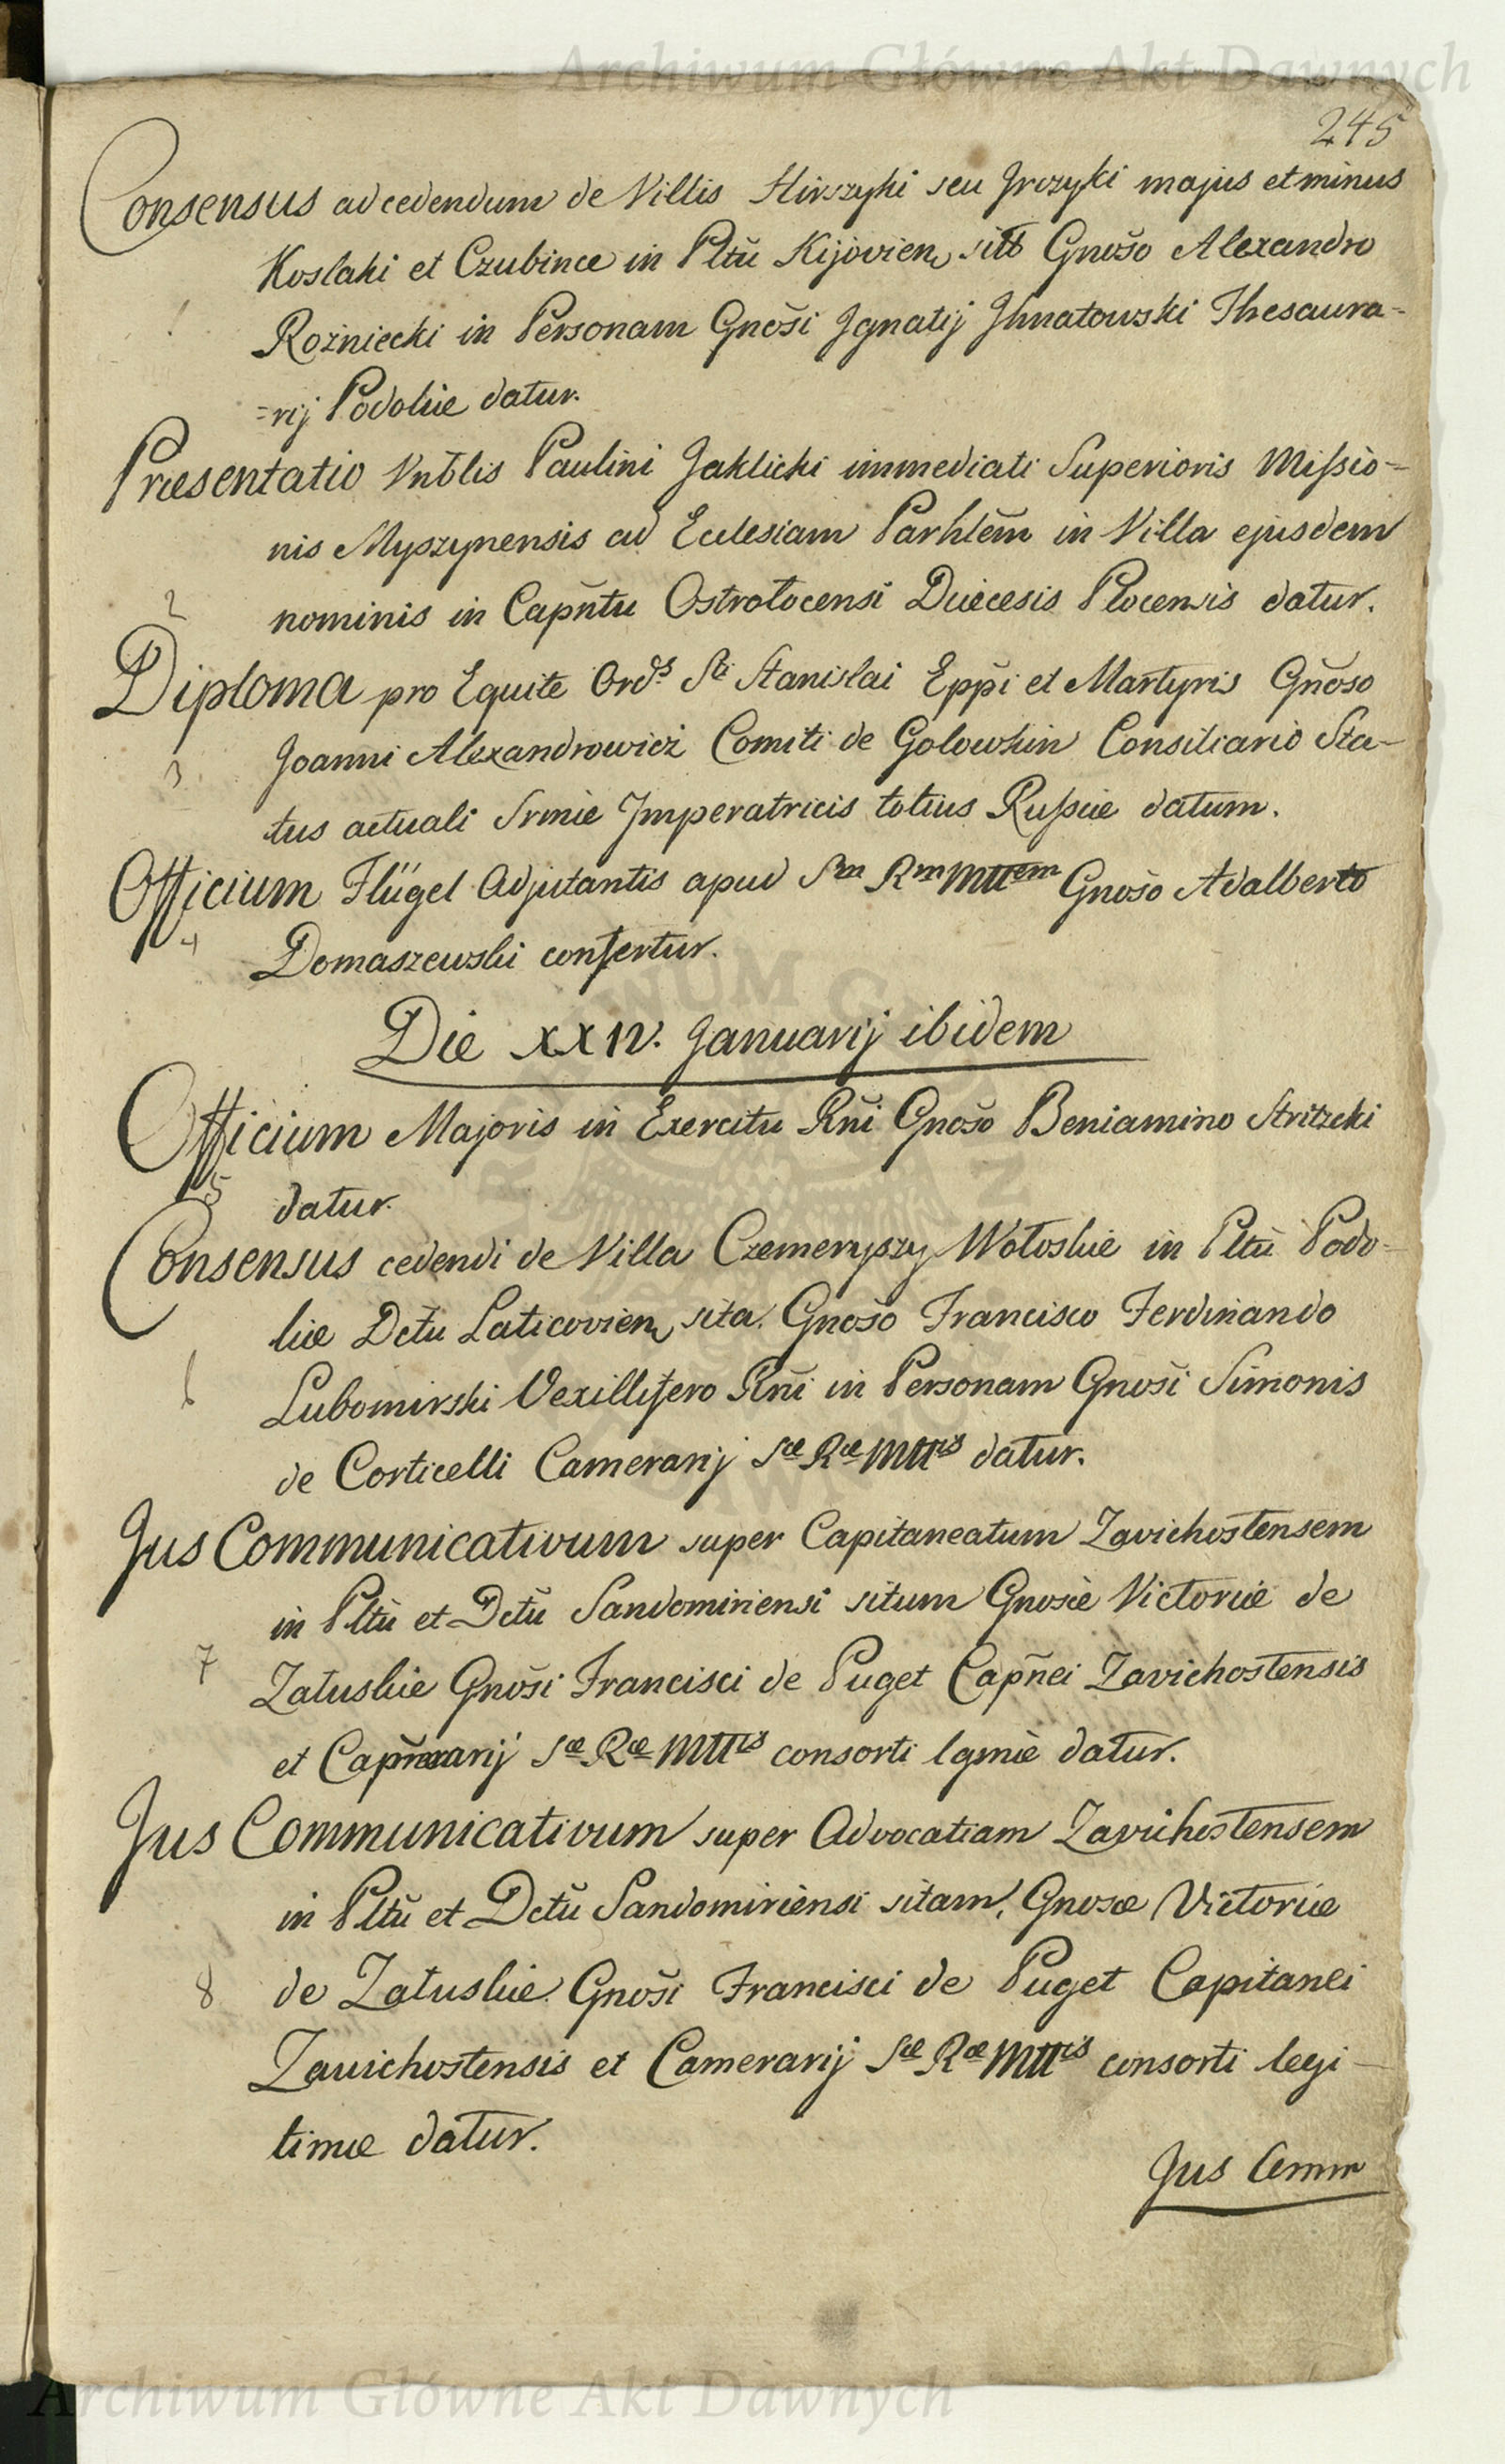 Archiwum Główne Akt Dawnych
245
Consensus ad cedendum de Villis Hirszyki seu Jrczyki majus et minus
Koslaki et Czubince in Pltũ Kijovien, sitis Gnoso Alexandro
Rożniecki in Personam Gnosi Jgnatij Jhnatowski Thesaura=
=rij Podoliæ datur.
Præsentatio Vnblis Paulini Jaklicki immediati Superioris Missio=
nis Myszynensis ad Ecclesiam Parhlẽm in Villa ejusdem
2 nominis in Capñtu Ostrołocensi Diæcesis Plocensis datur.
Diploma pro Equite Ordˢ Sti Stanislai Eppi et Martyris Gnoso
3 Joanni Alexandrowicz Comiti de Golowkin Consiliario Sta-
tus actuali Srmæ Jmperatricis totius Russiæ datum.
Officium Flügel Adjutantis apud Sm Rm Mttem Gnoso Adalberto
4 Domaszewski confertur.
Die XXIV. Januarij ibidem
Officium Majoris in Exercitu Rñi Gnoso Beniamino Stritzcki
5 datur.
Consensus cedendi de Villa Czemeryszy Wołoskie in Pltũ Podo=
liæ Dctũ Laticovien, sita. Gnoso Francisco Ferdinando
6 Lubomirski Vexillifero Rñi in Personam Gnosi Simonis
de Corticelli Camerarij Sæ Ræ Mttis datur.
Jus Communicativum super Capitaneatum Zavichostensem
in Pltũ et Dctũ Sandomiriensi situm Gnosæ Victoriæ de
7 Załuskie Gnosi Francisci de Puget Capñei Zavichostensis
et Camerarij Sæ Ræ Mttis consorti lgmæ datur.
Jus Communicativum super Advocatiam Zavichostensem
in Pltũ et Dctũ Sandomiriensi sitam, Gnosæ Victoriæ
8 de Załuskie Gnosi Francisci de Puget Capitanei
Zawichostensis et Camerarij Sæ Ræ Mttis consorti legi-
timæ datur.
Jus Comm
Archiwum Główne Akt Dawnych